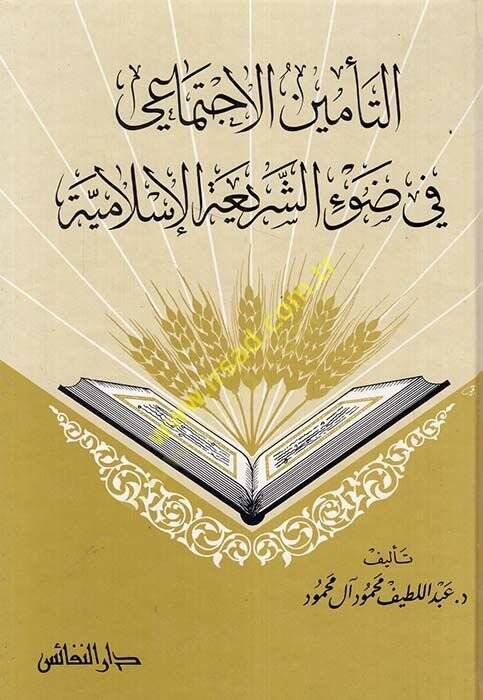 التأمين الاجتماعي
في ضوء الشريعة الإسلامية
www.irsad.com.tr
تأليف
د. عبد اللطيف محمود آل محمود
دار النفائس